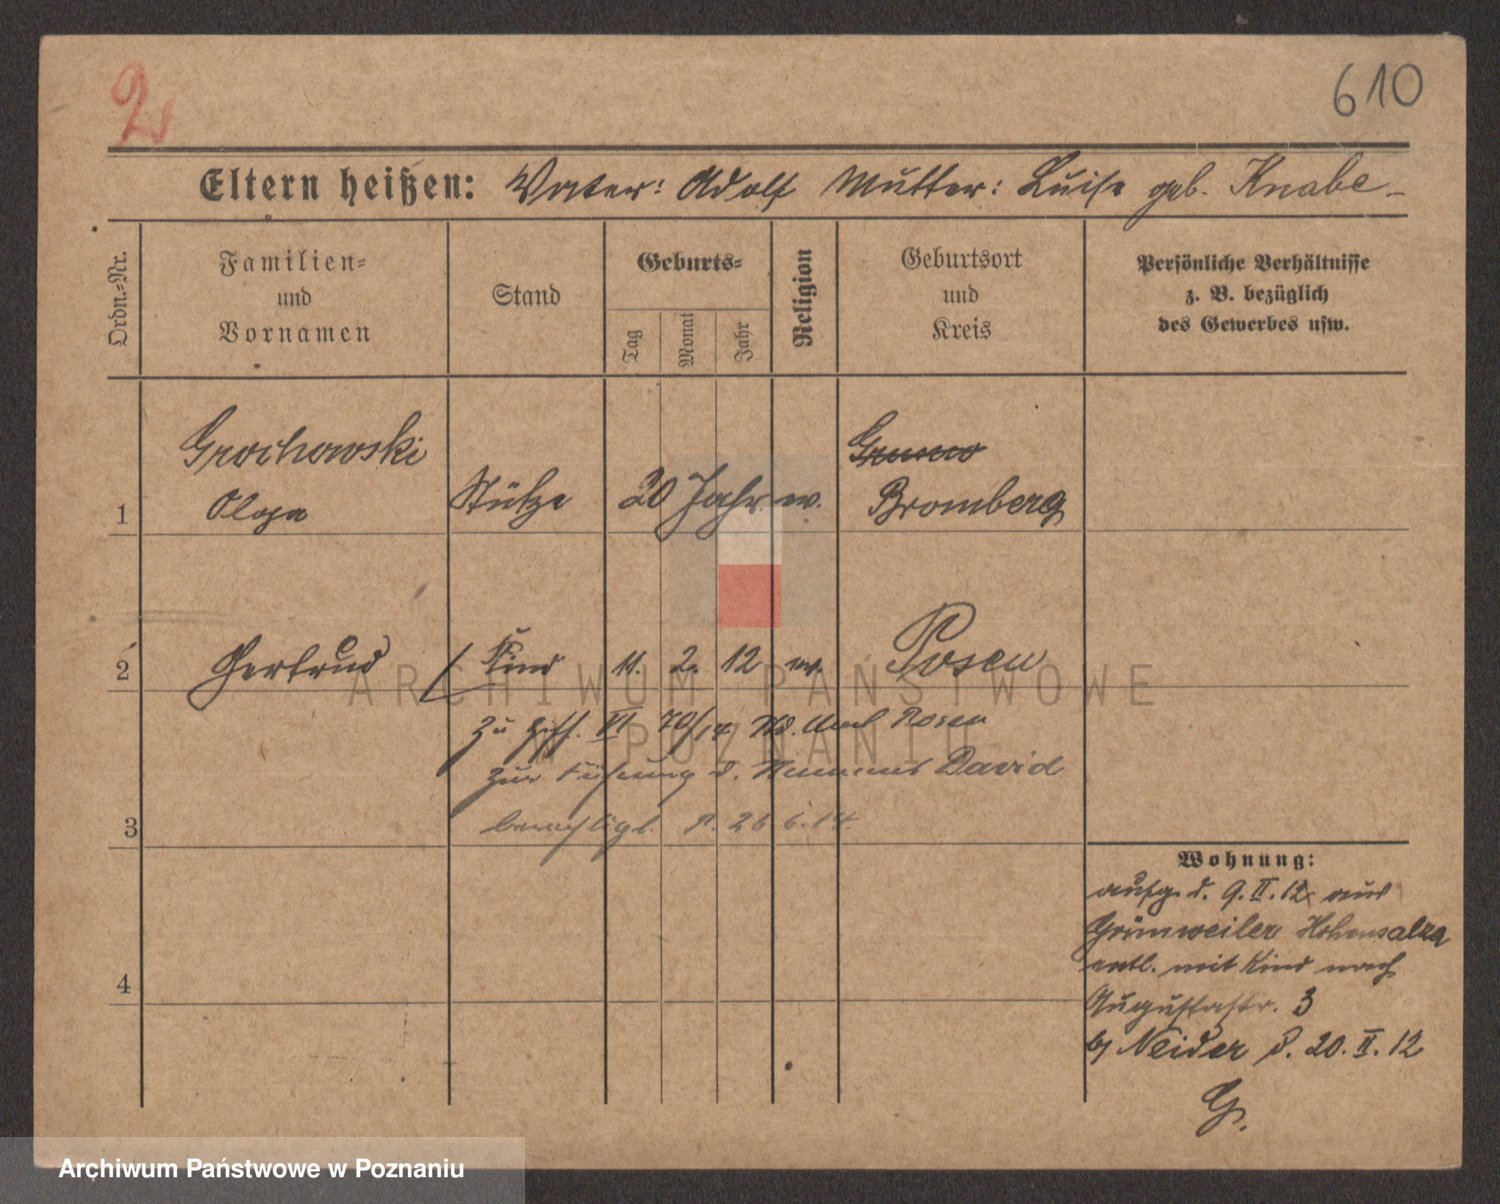 2
610
Eltern heißen: Vater: Adolf Mutter: Luise geb. Knabe
Ordn.-Nr.
Familien-
und
Vornamen
Stand
Geburts-
Tag
Monat
Jahr
Religion
Geburtsort
und
Kreis
Persönliche Verhältnisse
z. B. bezüglich
des Gewerbes usw.
Grochowski
Olga
1
Stütze
20 Jahr
ev.
Bromberg
2
Gertrud
Kind
11. 2. 12
ev.
Posen
zu Ziff. VI 70/14 Posen
zur Führung d. Namens David
berechtigt. P. 26 6. 14.
3
4
Wohnung:
aufg. d. 9. II. 12 aus
Grünweiler Hohensalza
entl. mit Kind nach
Augustastr. 3
b/ Neider d. 20. II. 12
G.
ARCHIWUM PAŃSTWOWE
W POZNANIU
Archiwum Państwowe w Poznaniu